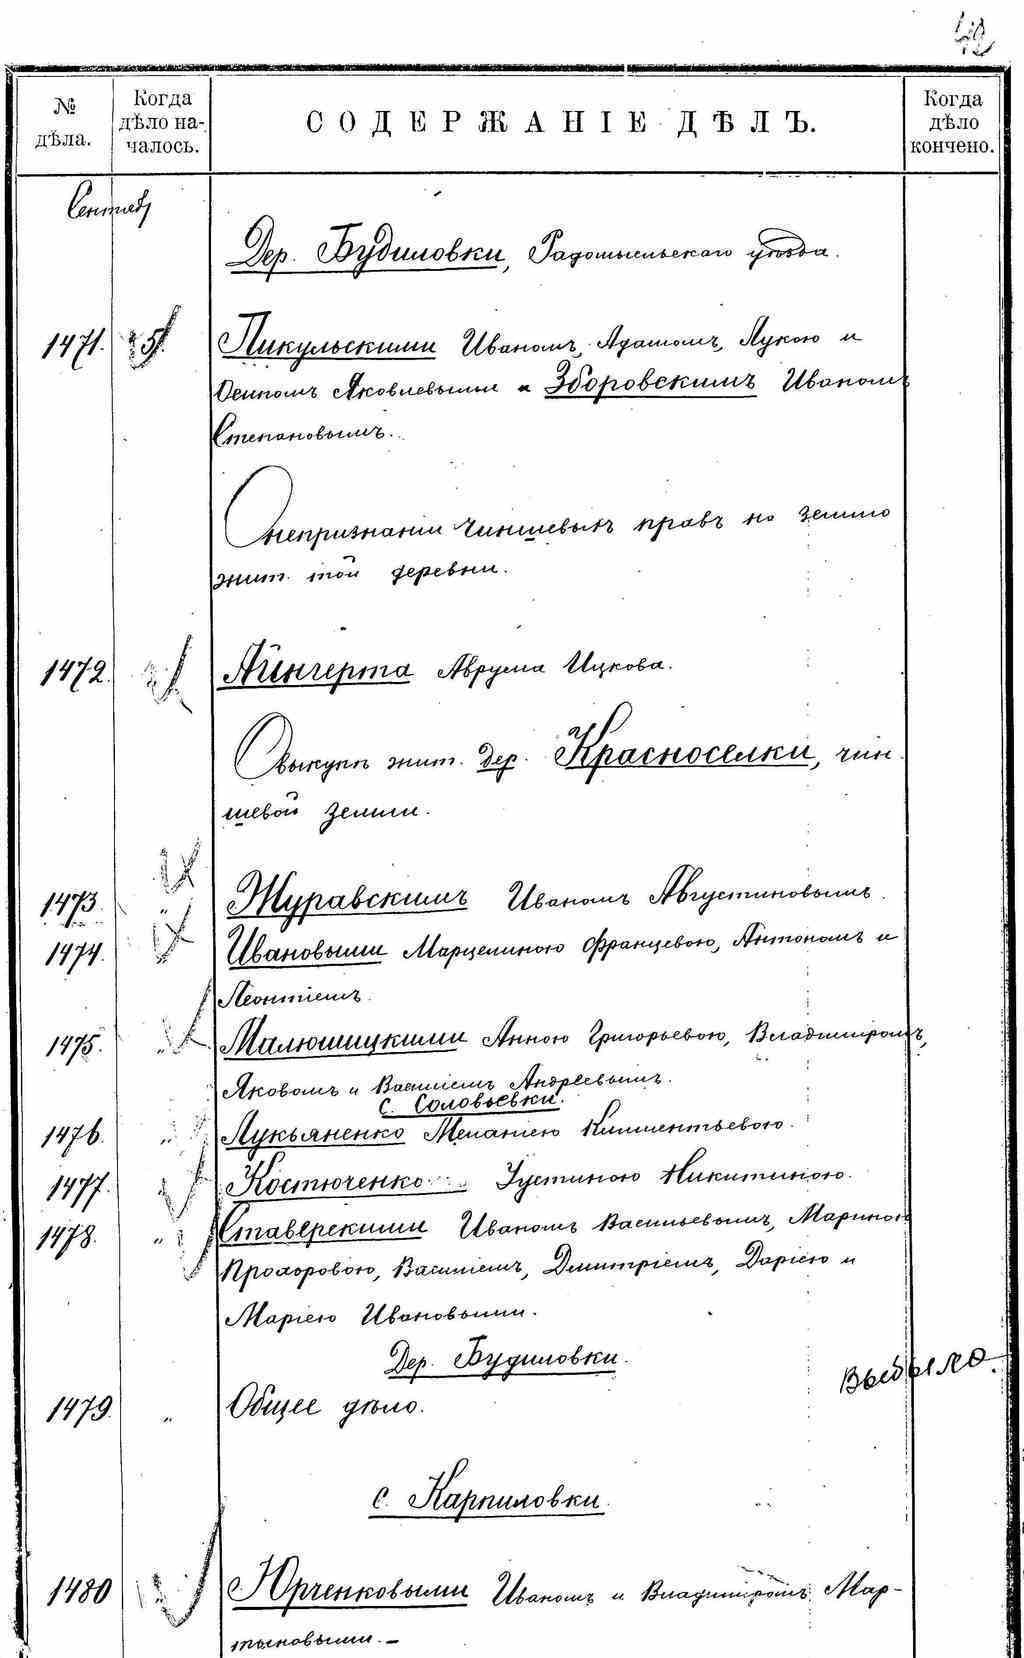 № дѣла.
Когда дѣло на-
чалось.
СОДЕРЖАНІЕ ДѢЛЪ.
Когда дѣло кончено.
Дер. Будиловки, Радомысльскаго уѣзда.
1471. 5. Пикульскими Иваномъ, Адамомъ, Лукою и
Осипомъ Яковлевыми и Зборовскимъ Иваномъ
Степановымъ.
О непризнаніи чиншевыхъ правъ на землю
жит. той деревни.
1472. Айнгерта Аврума Ицкова.
О выкупѣ жит. дер. Красноселки, чин-
шевой земли.
1473. " Журавскимъ Иваномъ Августиновымъ.
1474. " Ивановыми Марцелиною Францевою, Антономъ и
Леонтіемъ.
1475. " Малюшицкими Анною Григорьевою, Владимиромъ,
Яковомъ и Василіемъ Андреевыми.
с. Соловьевки.
1476. " Лукьяненко Меланіею Климентьевою.
1477. Костюченко Іустиною Никитиною.
1478. " Ставерскими Иваномъ Васильевымъ, Мариною
Прохоровою, Василіемъ, Дмитріемъ, Даріею и
Маріею Ивановыми.
Дер. Будиловки.
1479. " Общее дѣло. Выбыло.
с. Карпиловки.
1480 Юрченковыми Иваномъ и Владимиромъ Мар-
тыновыми.